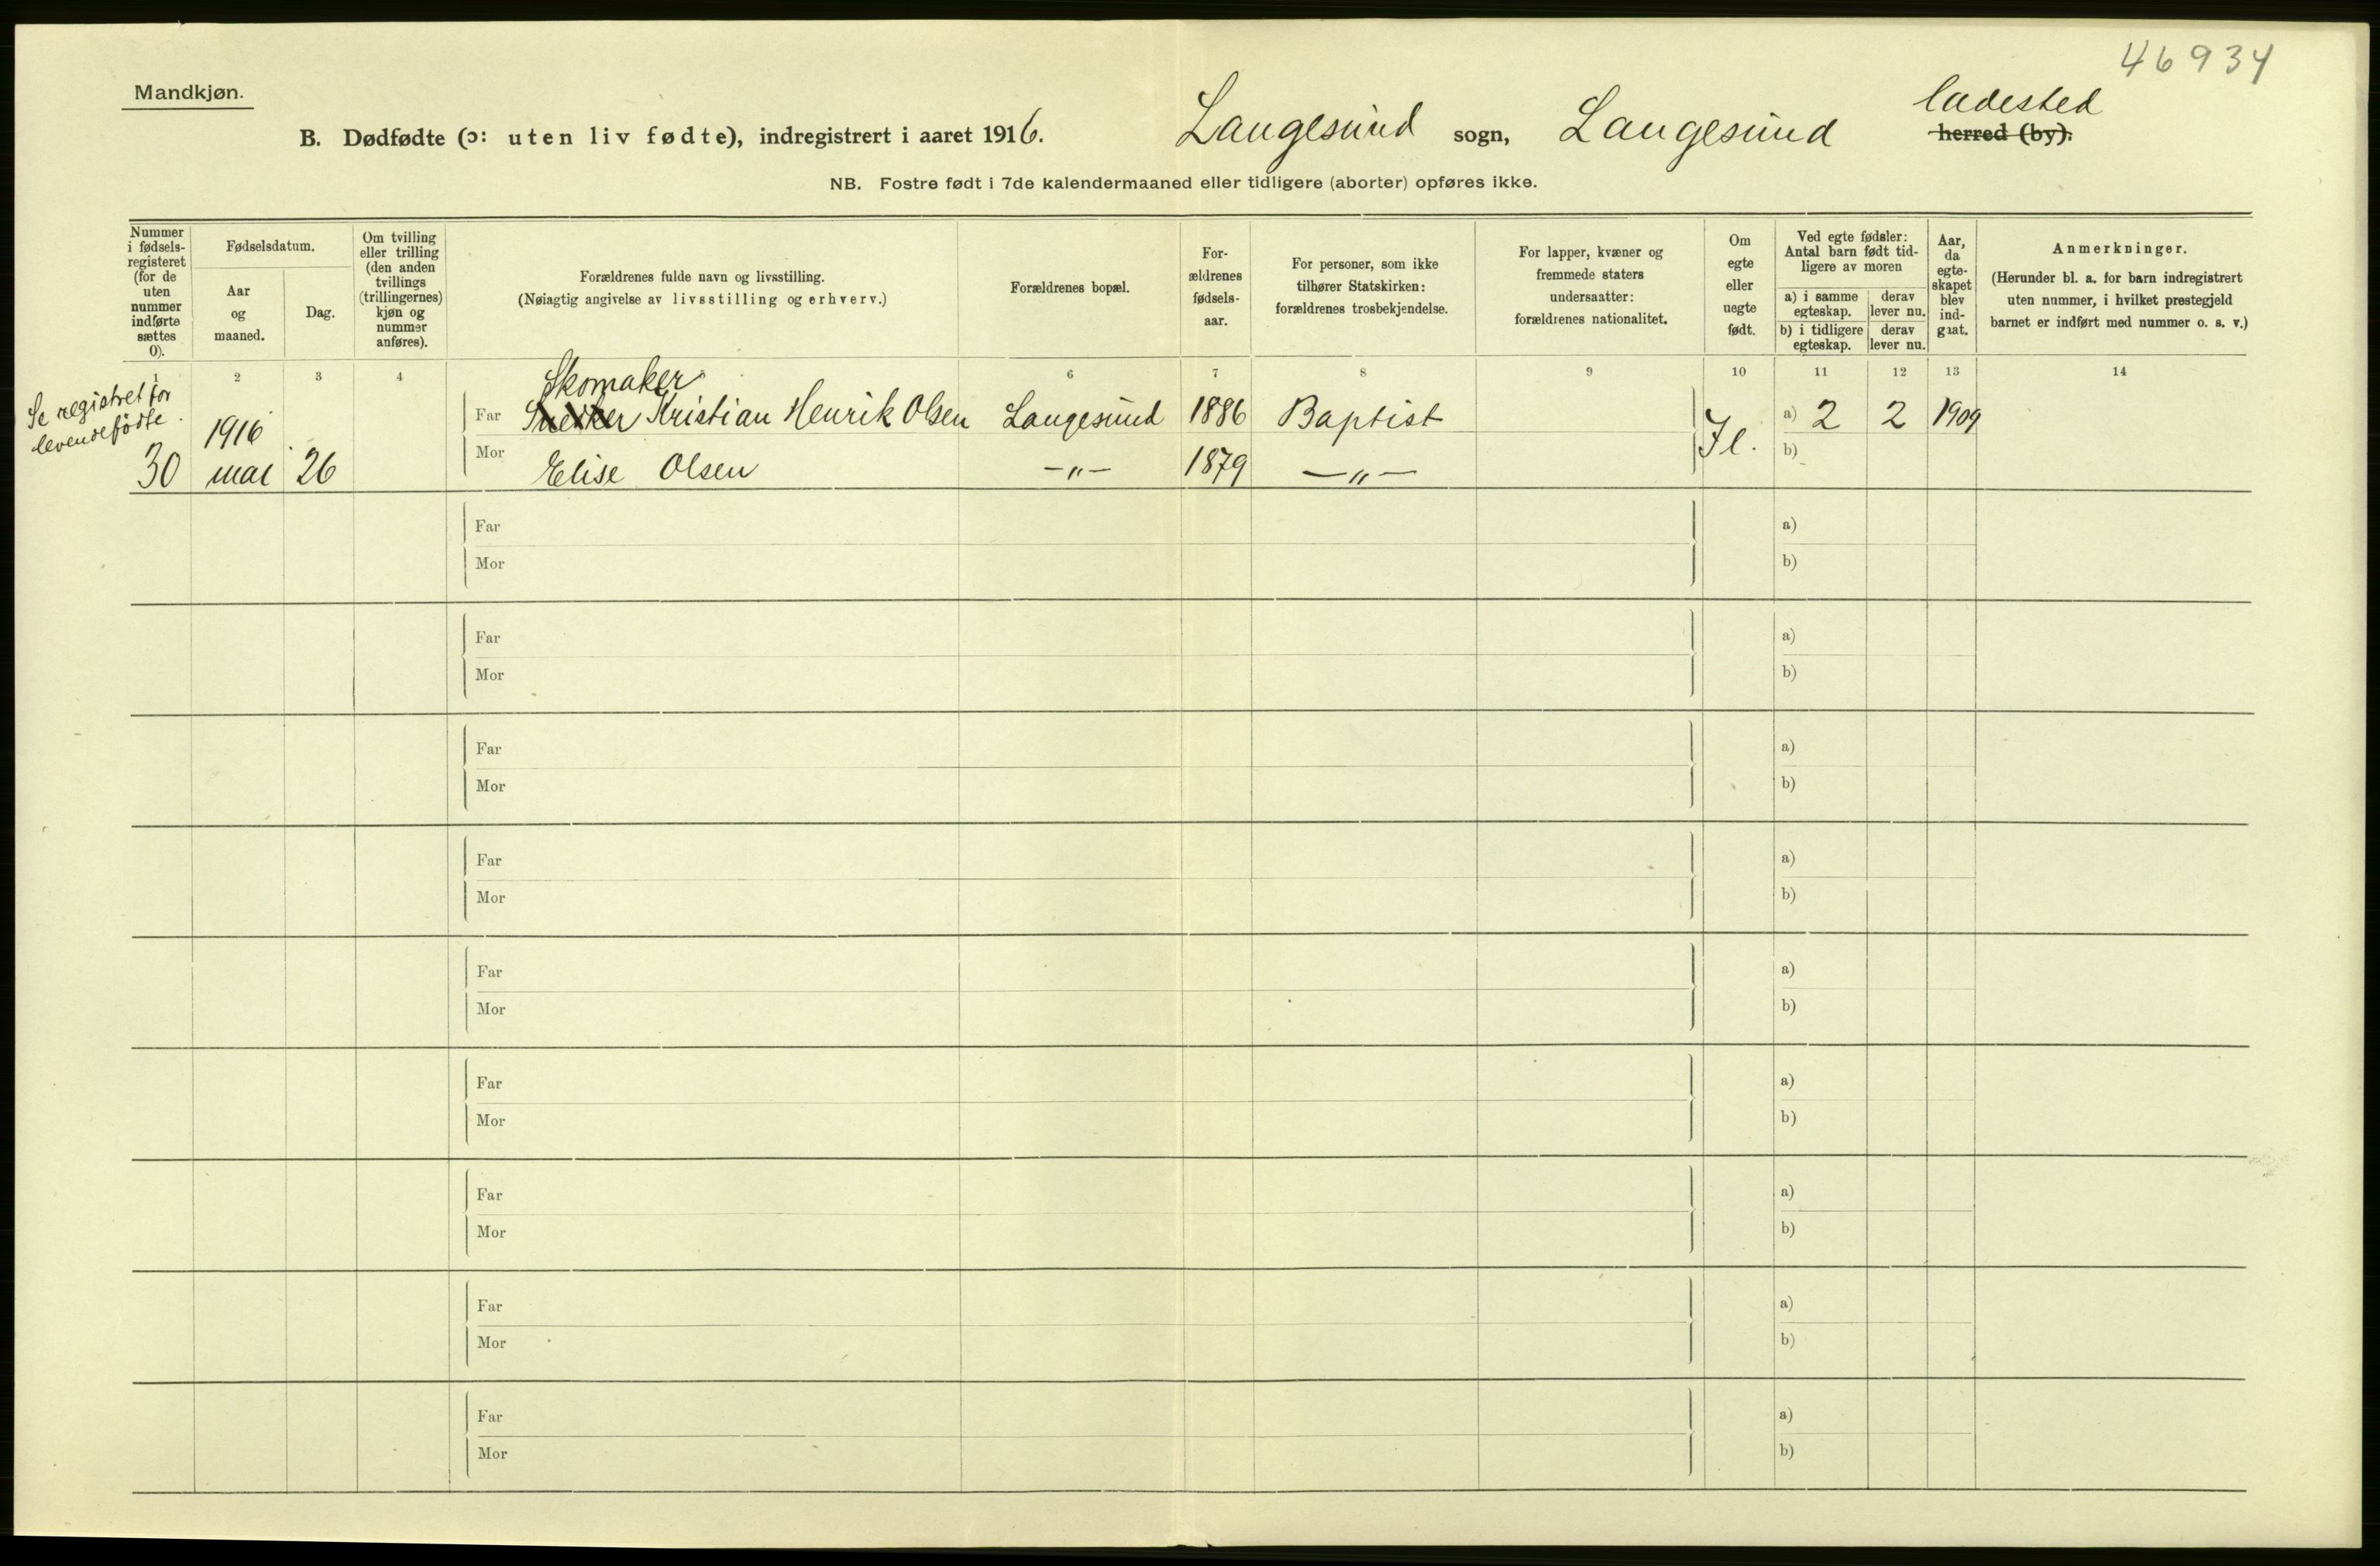 46934
Mandkjøn.
B. Dødfødte (ɔ: uten liv fødte), indregistrert i aaret 1916. Langesund sogn, Langesund ladested
herred (by).
NB. Fostre født i 7de kalendermaaned eller tidligere (aborter) opføres ikke.
Nummer
i fødsels-
registeret
(for de
uten
nummer
indførte
sættes
0).
Fødselsdatum.
Aar
og
maaned.
Dag.
Om tvilling
eller trilling
(den anden
tvillings
(trillingernes)
kjøn og
nummer
anføres).
Forældrenes fulde navn og livsstilling.
(Nøiagtig angivelse av livsstilling og erhverv.)
Forældrenes bopæl.
For-
ældrenes
fødsels-
aar.
For personer, som ikke
tilhører Statskirken:
forældrenes trosbekjendelse.
For lapper, kvæner og
fremmede staters
undersaatter:
forældrenes nationalitet.
Om
egte
eller
uegte
født.
Ved egte fødsler:
Antal barn født tid-
ligere av moren
a) i samme
egteskap.
derav
lever nu.
b) i tidligere
egteskap.
derav
lever nu.
Aar,
da
egte-
skapet
blev
ind-
gaat.
Anmerkninger.
(Herunder bl. a. for barn indregistrert
uten nummer, i hvilket prestegjeld
barnet er indført med nummer o. s. v.)
1 2 3 4 6 7 8 9 10 11 12 13 14
Se registret for
levendefødte.
Skomaker
1916 Far Kristian Henrik Olsen Langesund 1886 Baptist a) 2 2 1909
30 mai 26 Mor Elise Olsen -"- 1879 -"- b)
Far a)
Mor b)
Far a)
Mor b)
Far a)
Mor b)
Far a)
Mor b)
Far a)
Mor b)
Far a)
Mor b)
Far a)
Mor b)
Far a)
Mor b)
Far a)
Mor b)